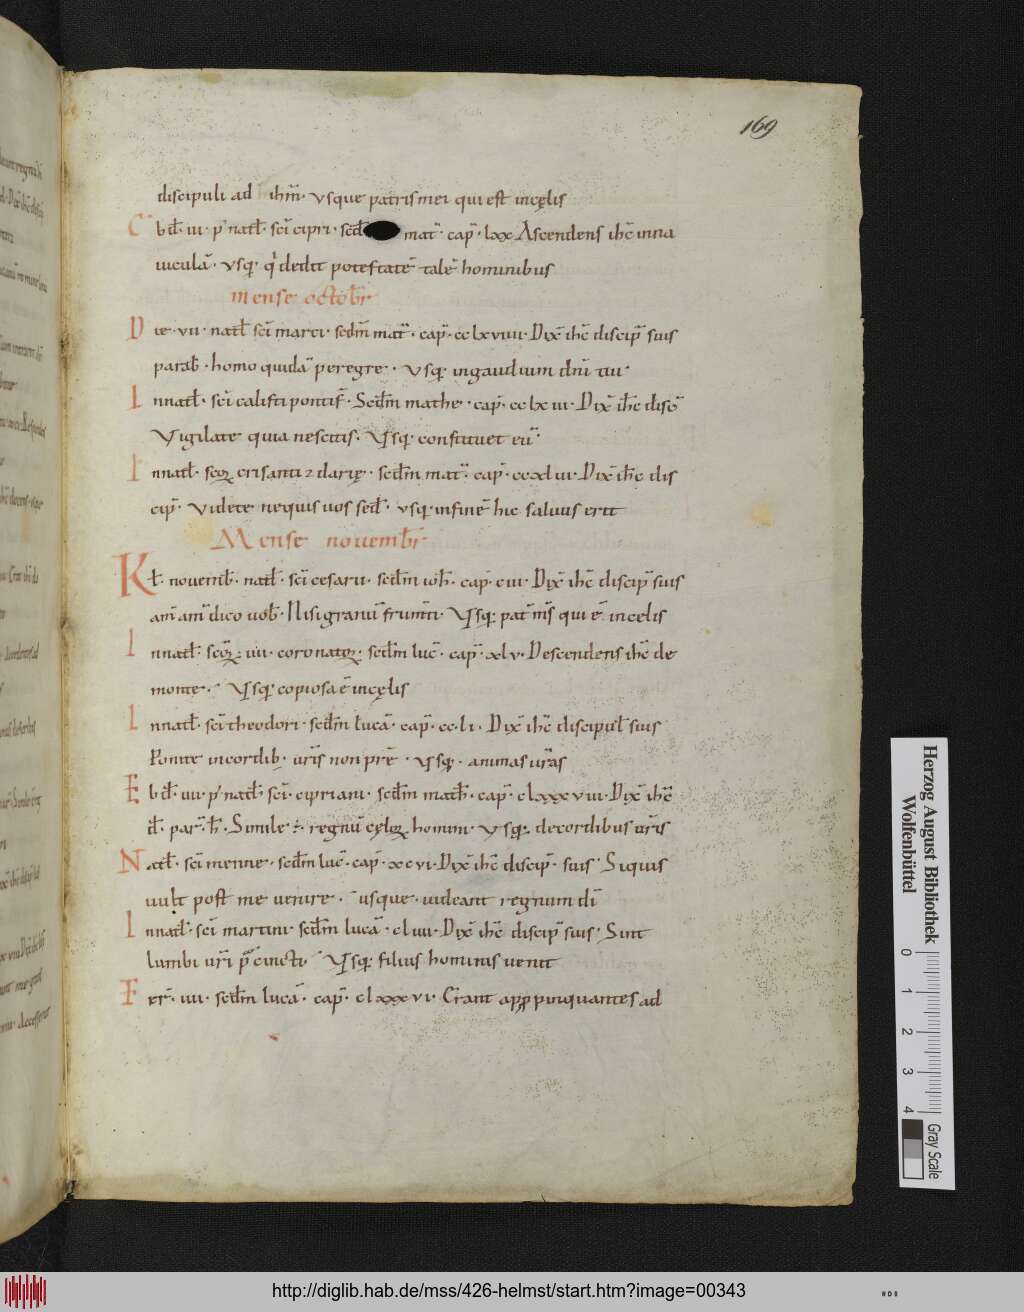 169
discipuli ad ihm̅. vsque patris mei qui est in cęlis
Ebd̅. iii. p' natł. sc̅i cipri. scd̅ mat̅. cap̅. lxx Ascendens ihc̅ in na
uiculā. vsq. q' dedit potestatē talē hominibus
Mense octob̅r
Die. vii. natł. sc̅i marci. scdm̅ mat̅. cap̅. cclxviiii. Dix̅ ihc̅ discip̅ suis
parab̅. homo quidā peregre. vsq. in gaudium dn̅i tui.
In natł. sc̅i calisti pontif̅. Scdm̅ mathe. cap̅. cclxiii. Dix̅ ihc̅ disc̅
Vigilate quia nescitis. Vsq. constituet eū.
In natł. scoꝝ crisanti ⁊ darię. scdm̅ mat̅. cap̅. ccxliii. Dix̅ ihc̅ dis
cip̅. Videte nequis uos sed̅. vsq. in finē hic saluus erit
Mense novemb̅r
Kł. novemb̅. natł. sc̅i cesarii. scdm̅ ioh̅. cap̅. ciii. Dix̅ ihc̅ discip̅ suis
am̅ am̅ dico uob̅. Nisi granū frum̅ti. Vsq. pat̅ m̅s qui ē in celis
In natł. scoꝝ. iiii. coronatoꝝ. scdm̅ luc̅. cap̅. xlv. Descendens ihc̅ de
monte. Vsq. copiosa ē in cęlis
In natł. sc̅i theodori. scdm̅ lucā. cap̅. cc. li. Dix̅ ihc̅ discipuł suis
Ponite in cordib. ur̅is non prē. Vsq. animas ur̅as
Ebd̅. iiii. p' natł. sc̅i. cipriani. scdm̅ math̅. cap̅. clxxxviii. Dix̅ ihc̅
d̅. par̅. h̅. Simile ÷ regnū cęloꝝ homini. Vsq. de cordibus ur̅is
Natł. sc̅i menne. scdm̅ luc̅. cap̅. xcvi. Dix̅ ihc̅ discip̅. suis. Siquis
uult post me uenire. usque. uideant regnum di̅
In natł. sc̅i martini. scdm̅ lucā. cliiii. Dix̅ ihc̅ discip̅ suis. Sint
lumbi ur̅i p̅cincti. Vsq. filius hominis uenit
Fer̅. iiii. scdm̅ lucā. cap̅. clxxxvi. Er̅ant appropinquantes ad
Herzog August Bibliothek
Wolfenbüttel
0 1 2 3 4
Gray Scale
http://diglib.hab.de/mss/426-helmst/start.htm?image=00343